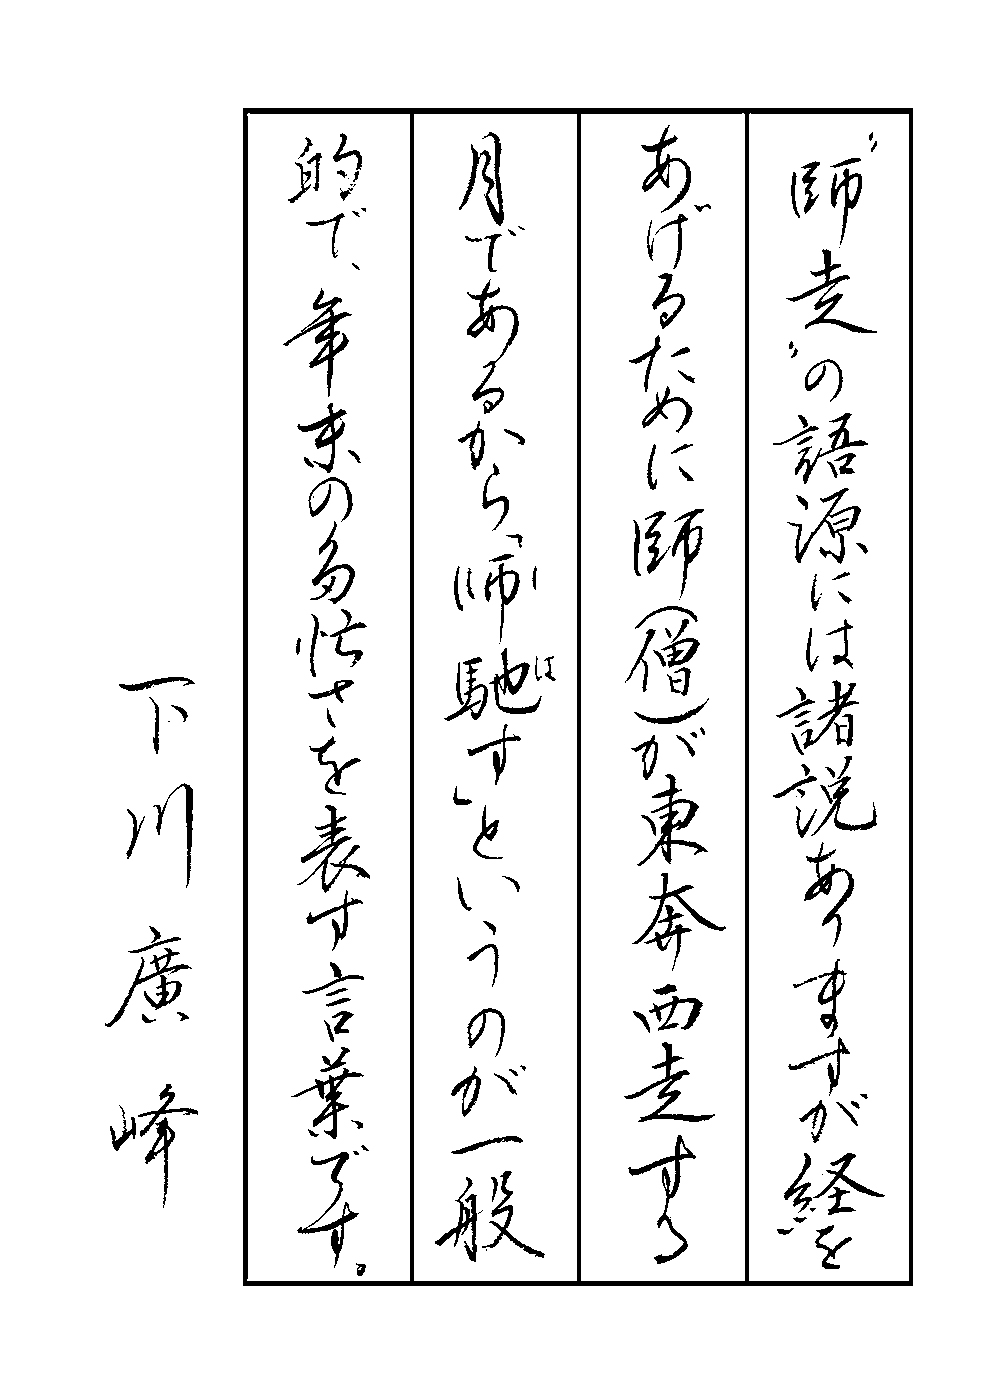 〝師走〟の語源には諸説ありますが経を
あげるために師(僧)が東奔西走する
月であるから、「師馳す」というのが一般
的で、年末の多忙さを表す言葉です。
下川廣峰